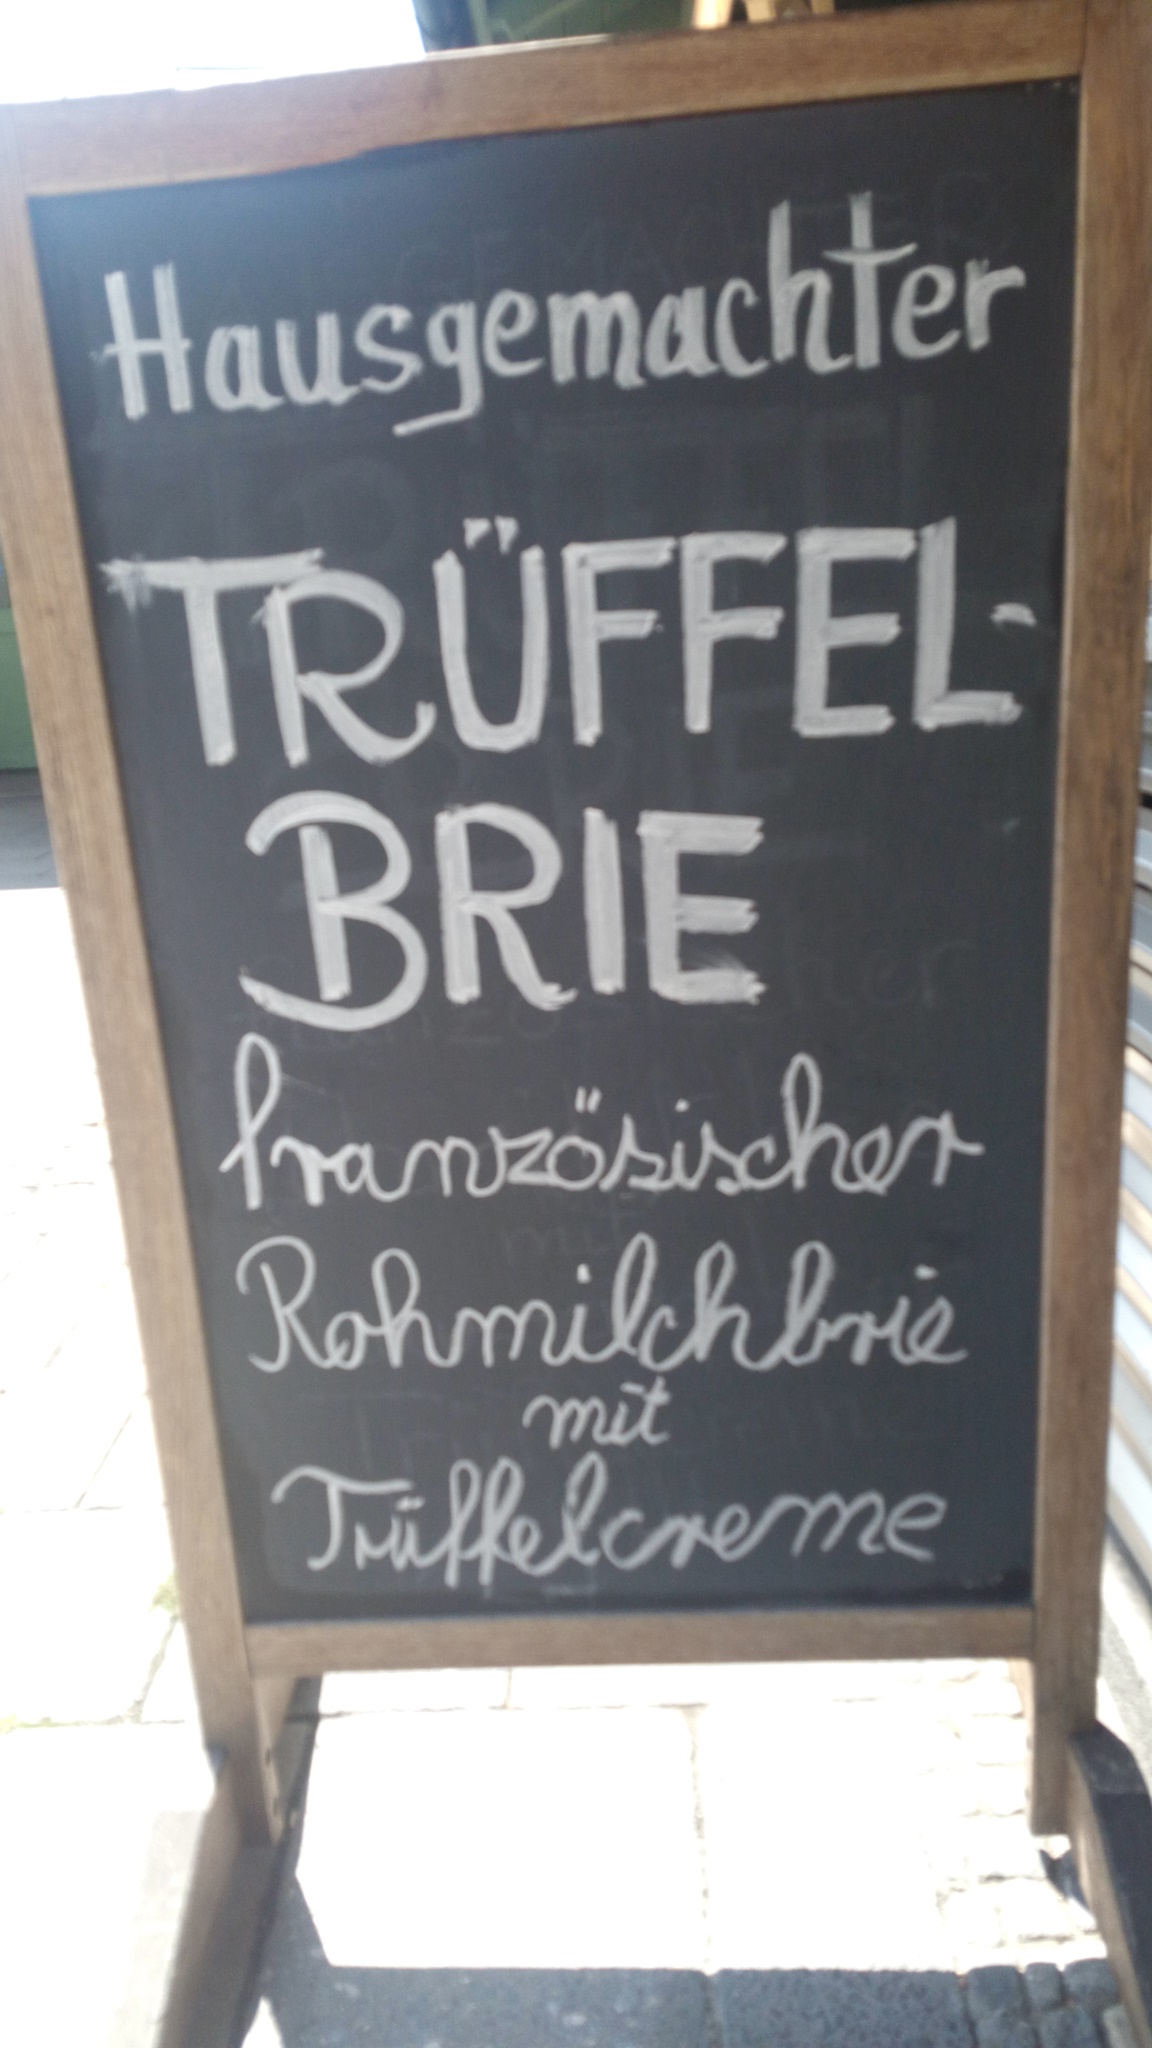 Hausgemachter
TRÜFFEL-
BRIE
französischer
Rohmilchbrie
mit
Trüffelcreme